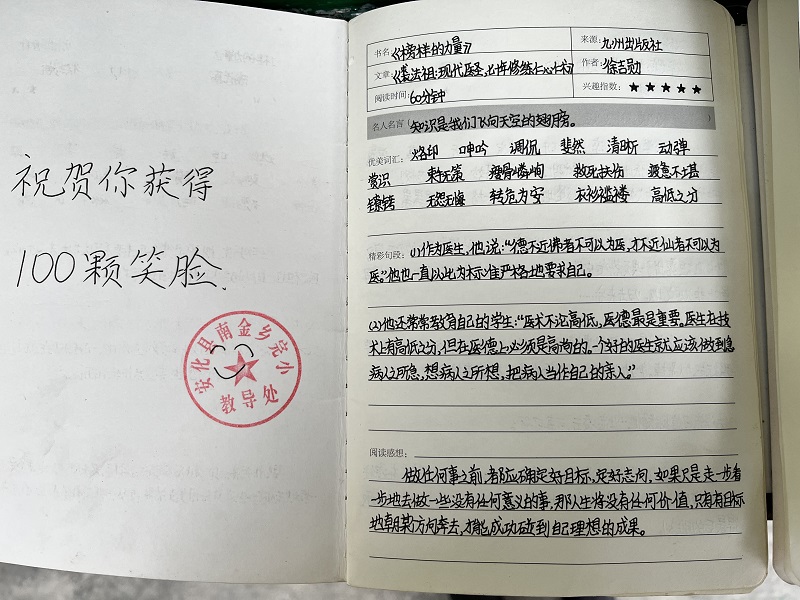 祝贺你获得
100颗笑脸.
安化县南金乡完小
教导处
书名:《榜样的力量》
来源: 九州出版社
文章:《裘法祖:现代医圣,七十年修炼仁心仁术》
作者: 徐吉勋
阅读时间: 60分钟
兴趣指数: ★★★★★
名人名言: 知识是我们飞向天空的翅膀。
优美词汇: 烙印 呻吟 调侃 斐然 清晰 动弹
赏识 束手无策 瘦骨嶙峋 救死扶伤 疲惫不堪
镣铐 无怨无悔 转危为安 衣衫褴褛 高低之分
精彩句段: (1)作为医生,他说:“德不近佛者不可以为医,才不近仙者不可以为
医。”他也一直以此为标准严格地要求自己。
(2)他还常常教育自己的学生:“医术不论高低,医德最是重要。医生在技
术上有高低之分,但在医德上必须是高尚的。一个好的医生就应该做到急
病人之所急,想病人之所想,把病人当作自己的亲人。”
阅读感想:
做任何事之前,都应确定好目标,定好志向,如果只是走一步看
一步地去做一些没有任何意义的事,那人生将没有任何价值,只有有目标
地朝某方向奔去,才能成功碰到自己理想的成果。